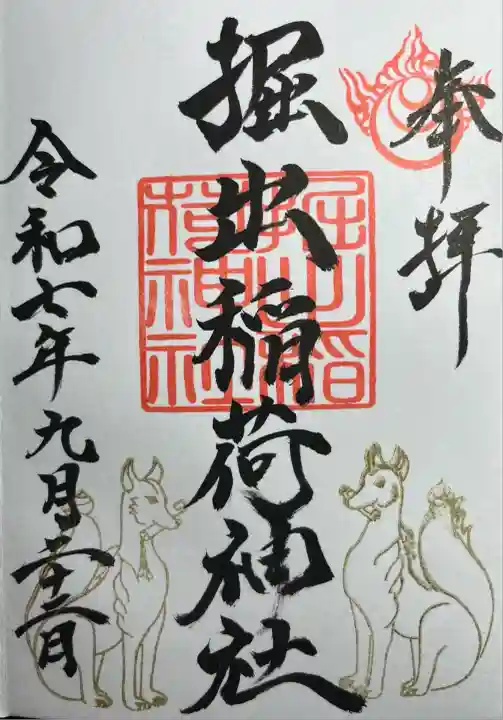 奉拝
掘出稲荷神社
令和七年九月二十三日
掘出稲
荷神社